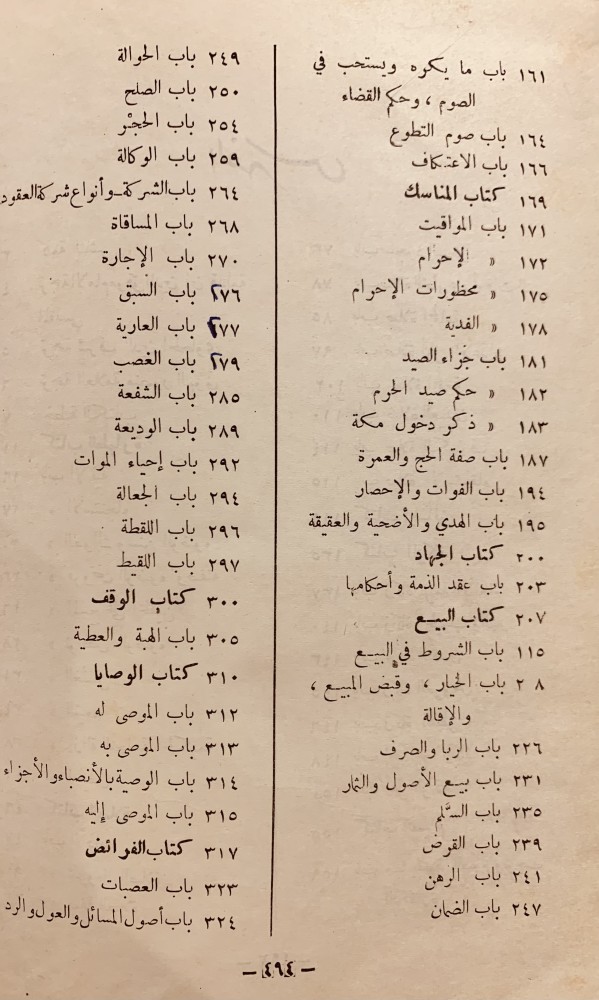 ١٦١ باب ما يكره ويستحب في
الصوم ، وحكم القضاء
١٦٤ باب صوم التطوع
١٦٦ باب الاعتكاف
١٦٩ كتاب المناسك
١٧١ باب المواقيت
١٧٢ « الإحرام
١٧٥ « محظورات الإحرام
١٧٨ « الفدية
١٨١ باب جزاء الصيد
١٨٢ « حكم صيد الحرم
١٨٣ « ذكر دخول مكة
١٨٧ باب صفة الحج والعمرة
١٩٤ باب الفوات والإحصار
١٩٥ باب الهدي والأضحية والعقيقة
٢٠٠ كتاب الجهاد
٢٠٣ باب عقد الذمة وأحكامها
٢٠٧ كتاب البيـع
١١٥ باب الشروط في البيـع
٢٠٨ باب الخيار ، وقبض المبيـع ،
والإقالة
٢٢٦ باب الربا والصرف
٢٣١ باب بيـع الأصول والثمار
٢٣٥ باب السَّلم
٢٣٩ باب القرض
٢٤١ باب الرهن
٢٤٧ باب الضمان
٢٤٩ باب الحوالة
٢٥٠ باب الصلح
٢٥٤ باب الحجْر
٢٥٩ باب الوكالة
٢٦٤ باب الشركة ـ وأنواع شركة العقود
٢٦٨ باب المساقاة
٢٧٠ باب الإجارة
٢٧٦ باب السبق
٢٧٧ باب العارية
٢٧٩ باب الغصب
٢٨٥ باب الشفعة
٢٨٩ باب الوديعة
٢٩٢ باب إحياء الموات
٢٩٤ باب الجعالة
٢٩٦ باب اللقطة
٢٩٧ باب اللقيط
٣٠٠ كتاب الوقف
٣٠٥ باب الهبة والعطية
٣١٠ كتاب الوصايا
٣١٢ باب الموصى له
٣١٣ باب الموصى به
٣١٤ باب الوصية بالأنصباء والأجزاء
٣١٥ باب الموصى إليه
٣١٧ كتاب الفرائض
٣٢٣ باب العصبات
٣٢٤ باب أصول المسائل والعول والرد
ـ ٤٩٤ ـ